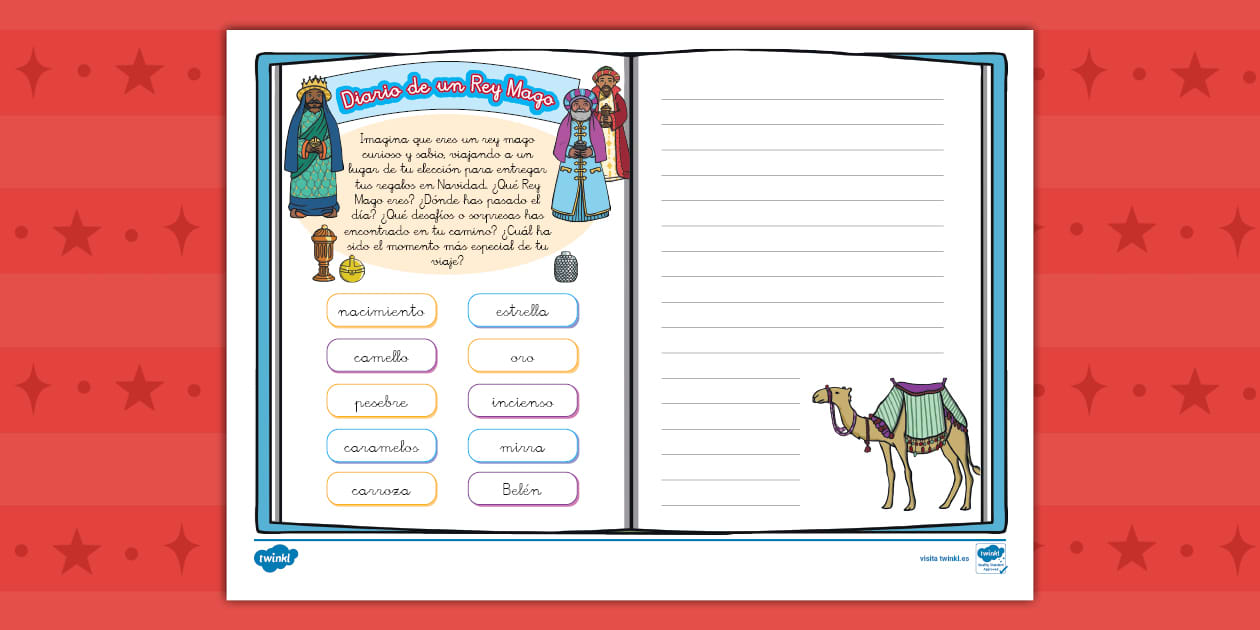 Diario de un Rey Mago
Imagina que eres un rey mago
curioso y sabio, viajando a un
lugar de tu elección para entregar
tus regalos en Navidad. ¿Qué Rey
Mago eres? ¿Dónde has pasado el
día? ¿Qué desafíos o sorpresas has
encontrado en tu camino? ¿Cuál ha
sido el momento más especial de tu
viaje?
nacimiento
estrella
camello
oro
pesebre
incienso
caramelos
mirra
carroza
Belén
twinkl
visita twinkl.es
twinkl
Quality Standard
Approved